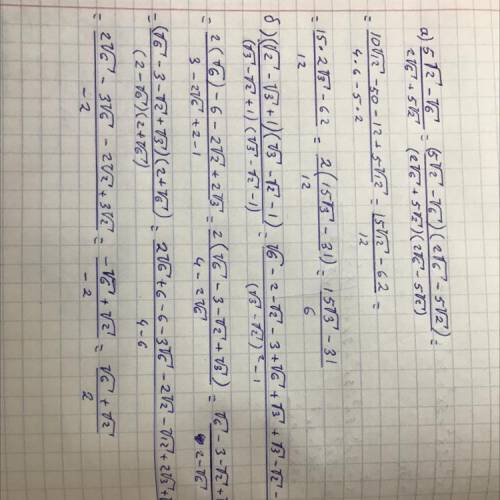 а) 5√2 - √6 / 2√6 + 5√2 = (5√2 - √6)(2√6 - 5√2) / (2√6 + 5√2)(2√6 - 5√2) =
= 10√12 - 50 - 12 + 5√12 / 4·6 - 5·2 = 15√12 - 62 / 12 =
= 15·2√3 - 62 / 12 = 2(15√3 - 31) / 12 = 15√3 - 31 / 6
б) (√2 - √3 + 1)(√3 - √2 - 1) / (√3 - √2 + 1)(√3 - √2 - 1) = √6 - 2 - √2 - 3 + √6 + √3 + √3 - √2 - / (√3 - √2)² - 1
= 2(√6) - 6 - 2√2 + 2√3 / 3 - 2√6 + 2 - 1 = 2(√6 - 3 - √2 + √3) / 4 - 2√6 = √6 - 3 - √2 + / 2 - √6
= (√6 - 3 - √2 + √3)(2 + √6) / (2 - √6)(2 + √6) = 2√6 + 6 - 6 - 3√6 - 2√2 - √12 + 2√3 + / 4 - 6
= 2√6 - 3√6 - 2√2 + 3√2 / -2 = -√6 + √2 / -2 = √6 + √2 / 2